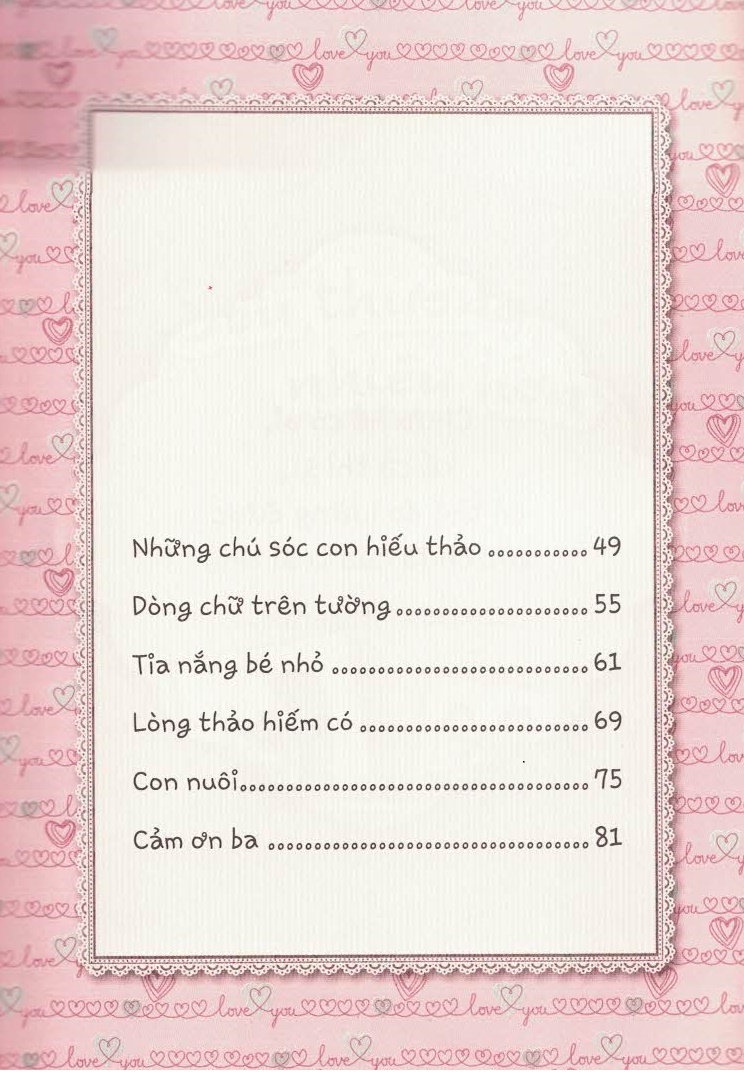 Những chú sóc con hiếu thảo ........... 49
Dòng chữ trên tường..................... 55
Tia nắng bé nhỏ ............................ 61
Lòng thảo hiếm có ......................... 69
Con nuôi...................................... 75
Cảm ơn ba ................................... 81